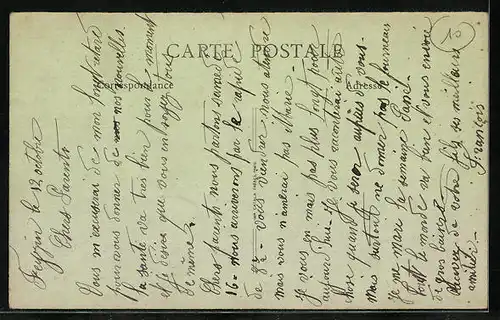 CARTE POSTALE
Correspondance
Adresse
70
Feyzin le 13 octobre
Chers Parents
Vous m'excuserai de mon longt retard
pour vous donner de nos nouvelles.
la santé va très bien pour le moment
et je désire que vous en soyez tous
de même.
Chers parents nous partons samedi
16 nous arriverons par le
de 8h - vous viendrez nous attendre
mais vous n'amènerai pas
Je vous en mais pas plus longt pour
aujourd'hui. Je vous raconterai autre
chose quand je serai auprès de vous.
Mais surtout ne donner pas le fourneau
Je me marie la semaine
tout le monde va bien et vous envoie
de gros baisers
Recevez de votre fils ses meilleurs
amitiés.
François